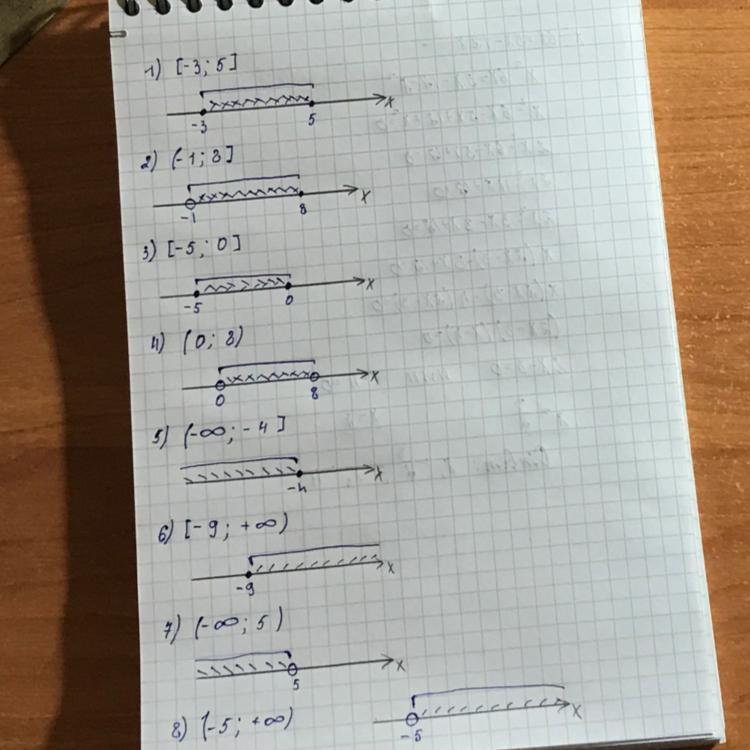 1) [-3; 5]
-3 5 x
2) (-1; 8]
-1 8 x
3) [-5; 0]
-5 0 x
4) (0; 8)
0 8 x
5) (-∞; -4]
-4 x
6) [-9; +∞)
-9 x
7) (-∞; 5)
5 x
8) (-5; +∞)
-5 x